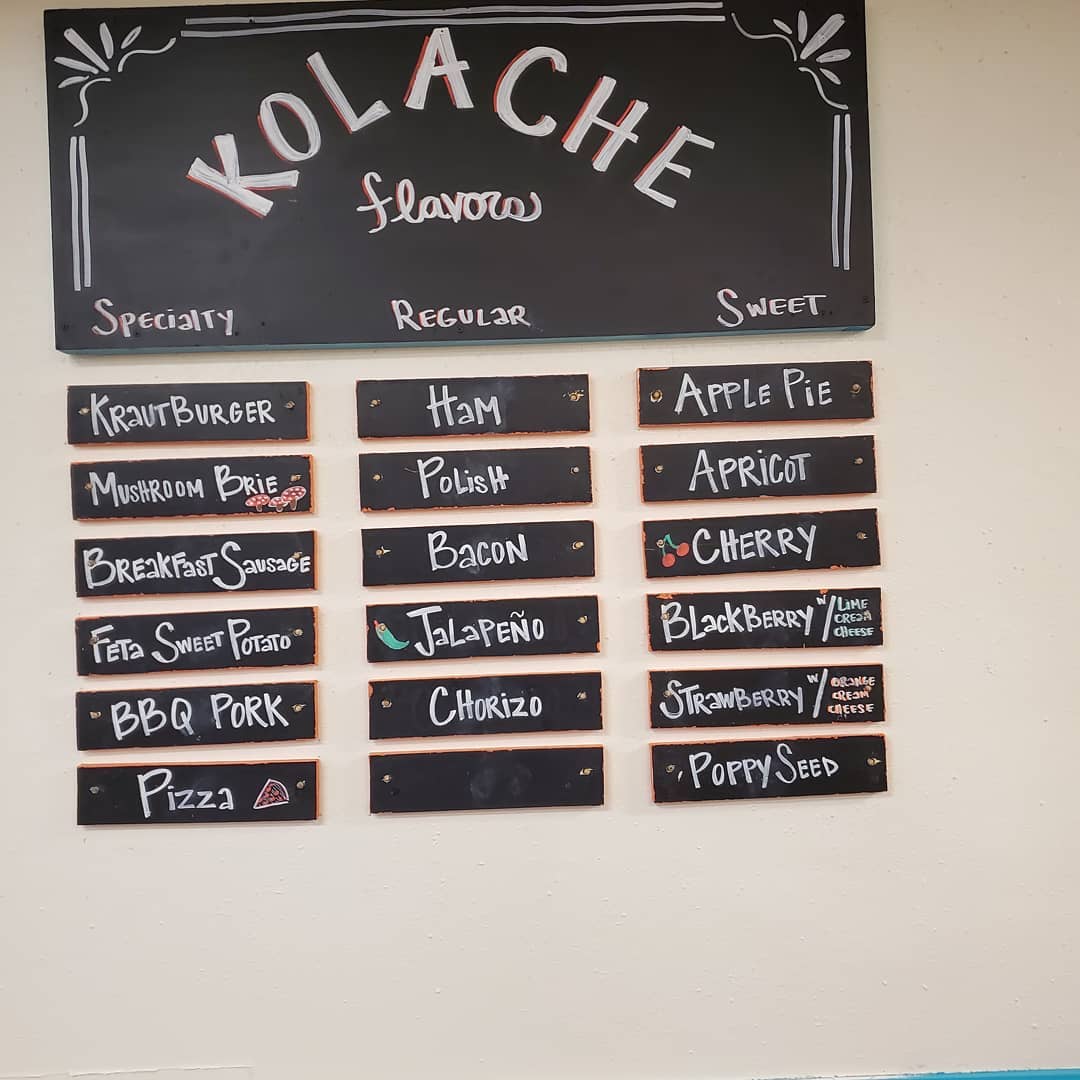 KOLACHE
flavors
Specialty Regular Sweet
KrautBurger
Mushroom Brie
Breakfast Sausage
Feta Sweet Potato
BBQ Pork
Pizza
Ham
Polish
Bacon
Jalapeño
Chorizo
Apple Pie
Apricot
Cherry
Blackberry w/ Lime
Cream
Cheese
Strawberry w/ Orange
Cream
Cheese
Poppy Seed